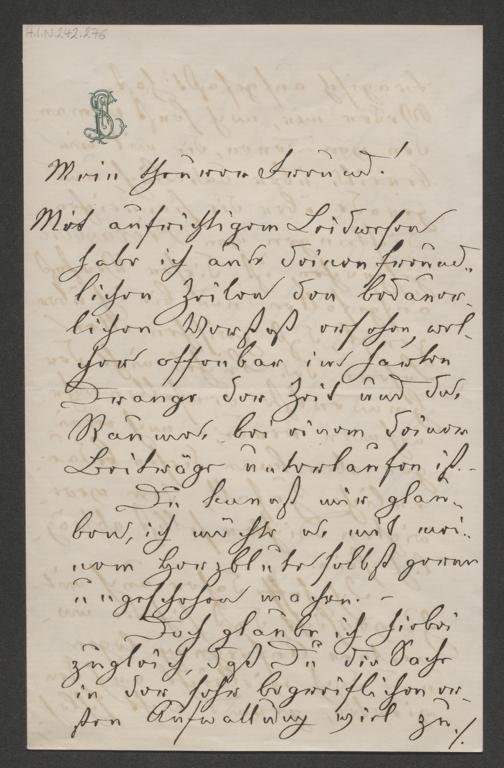 H.I.N. 242.276
Mein theurer Freund!
Mit aufrichtigem Leidwesen
habe ich aus deinen freund-
lichen Zeilen den bedauer-
lichen Verstoß ersehen, wel-
cher offenbar im harten
Drange der Zeit und des
Raumes bei einem deiner
Beiträge unterlaufen ist. -
Du kannst mir glau-
ben, ich möchte es mit mei-
nem Herzblute selbst gerne
ungeschehen machen. -
Doch glaube ich hiebei
zugleich, daß Du die Sache
in der sehr begreiflichen er-
sten Aufwallung viel zu ./.